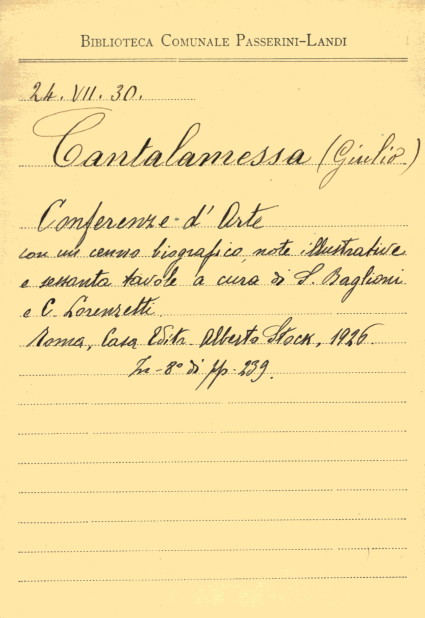 BIBLIOTECA COMUNALE PASSERINI-LANDI
24. VII. 30.
Cantalamessa (Giulio)
Conferenze d'Arte
con un cenno biografico, note illustrative
e sessanta tavole a cura di S. Baglioni
e C. Lorenzetti.
Roma, Casa Edit. Alberto Stock, 1926.
In-8° di pp. 239.